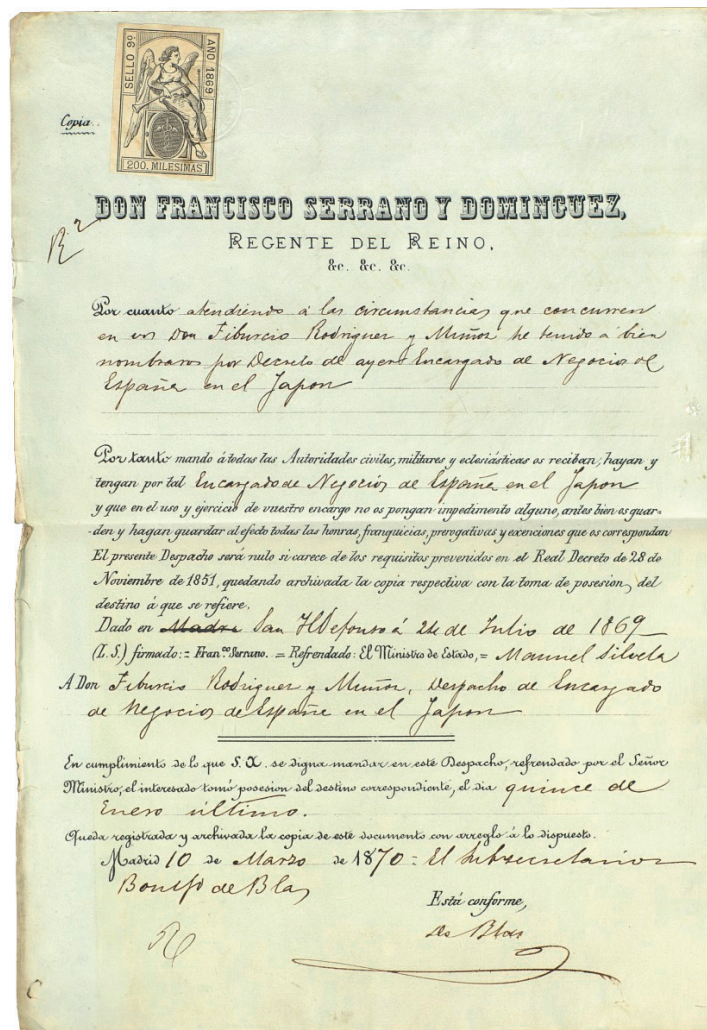 SELLO 9º
AÑO 1869
200. MILESIMAS
Copia.
DON FRANCISCO SERRANO Y DOMINGUEZ,
REGENTE DEL REINO,
&c. &c. &c.
Por cuanto atendiendo á las circunstancias que concurren
en vos Don Tiburcio Rodriguez y Muñoz he tenido á bien
nombraros por Decreto de ayer Encargado de Negocios de
España en el Japon
Por tanto mando á todas las Autoridades civiles, militares y eclesiásticas os reciban, hayan y
tengan por tal Encargado de Negocios de España en el Japon
y que en el uso y ejercicio de vuestro encargo no os pongan impedimento alguno, antes bien os guar-
-den y hagan guardar al efecto todas las honras, franquicias, prerogativas y exenciones que os correspondan
El presente Despacho será nulo si carece de los requisitos prevenidos en el Real Decreto de 28 de
Noviembre de 1851, quedando archivada la copia respectiva con la toma de posesion, del
destino á que se refiere.
Dado en Madri San Ildefonso á de Julio de 1869
(L. S.) firmado: = Fran.co Serrano. = Refrendado: El Ministro de Estado, = Manuel Silvela
A Don Tiburcio Rodriguez y Muñoz, Despacho de Encargado
de Negocios de España en el Japon
En cumplimiento de lo que S. A. se digna mandar en este Despacho, refrendado por el Señor
Ministro, el interesado tomó posesion del destino correspondiente, el dia quince de
Enero último.
Queda registrada y archivada la copia de este documento con arreglo á lo dispuesto.
Madrid 10 de Marzo de 1870 = El Subsecretario
de Blas
Está conforme,
De Blas